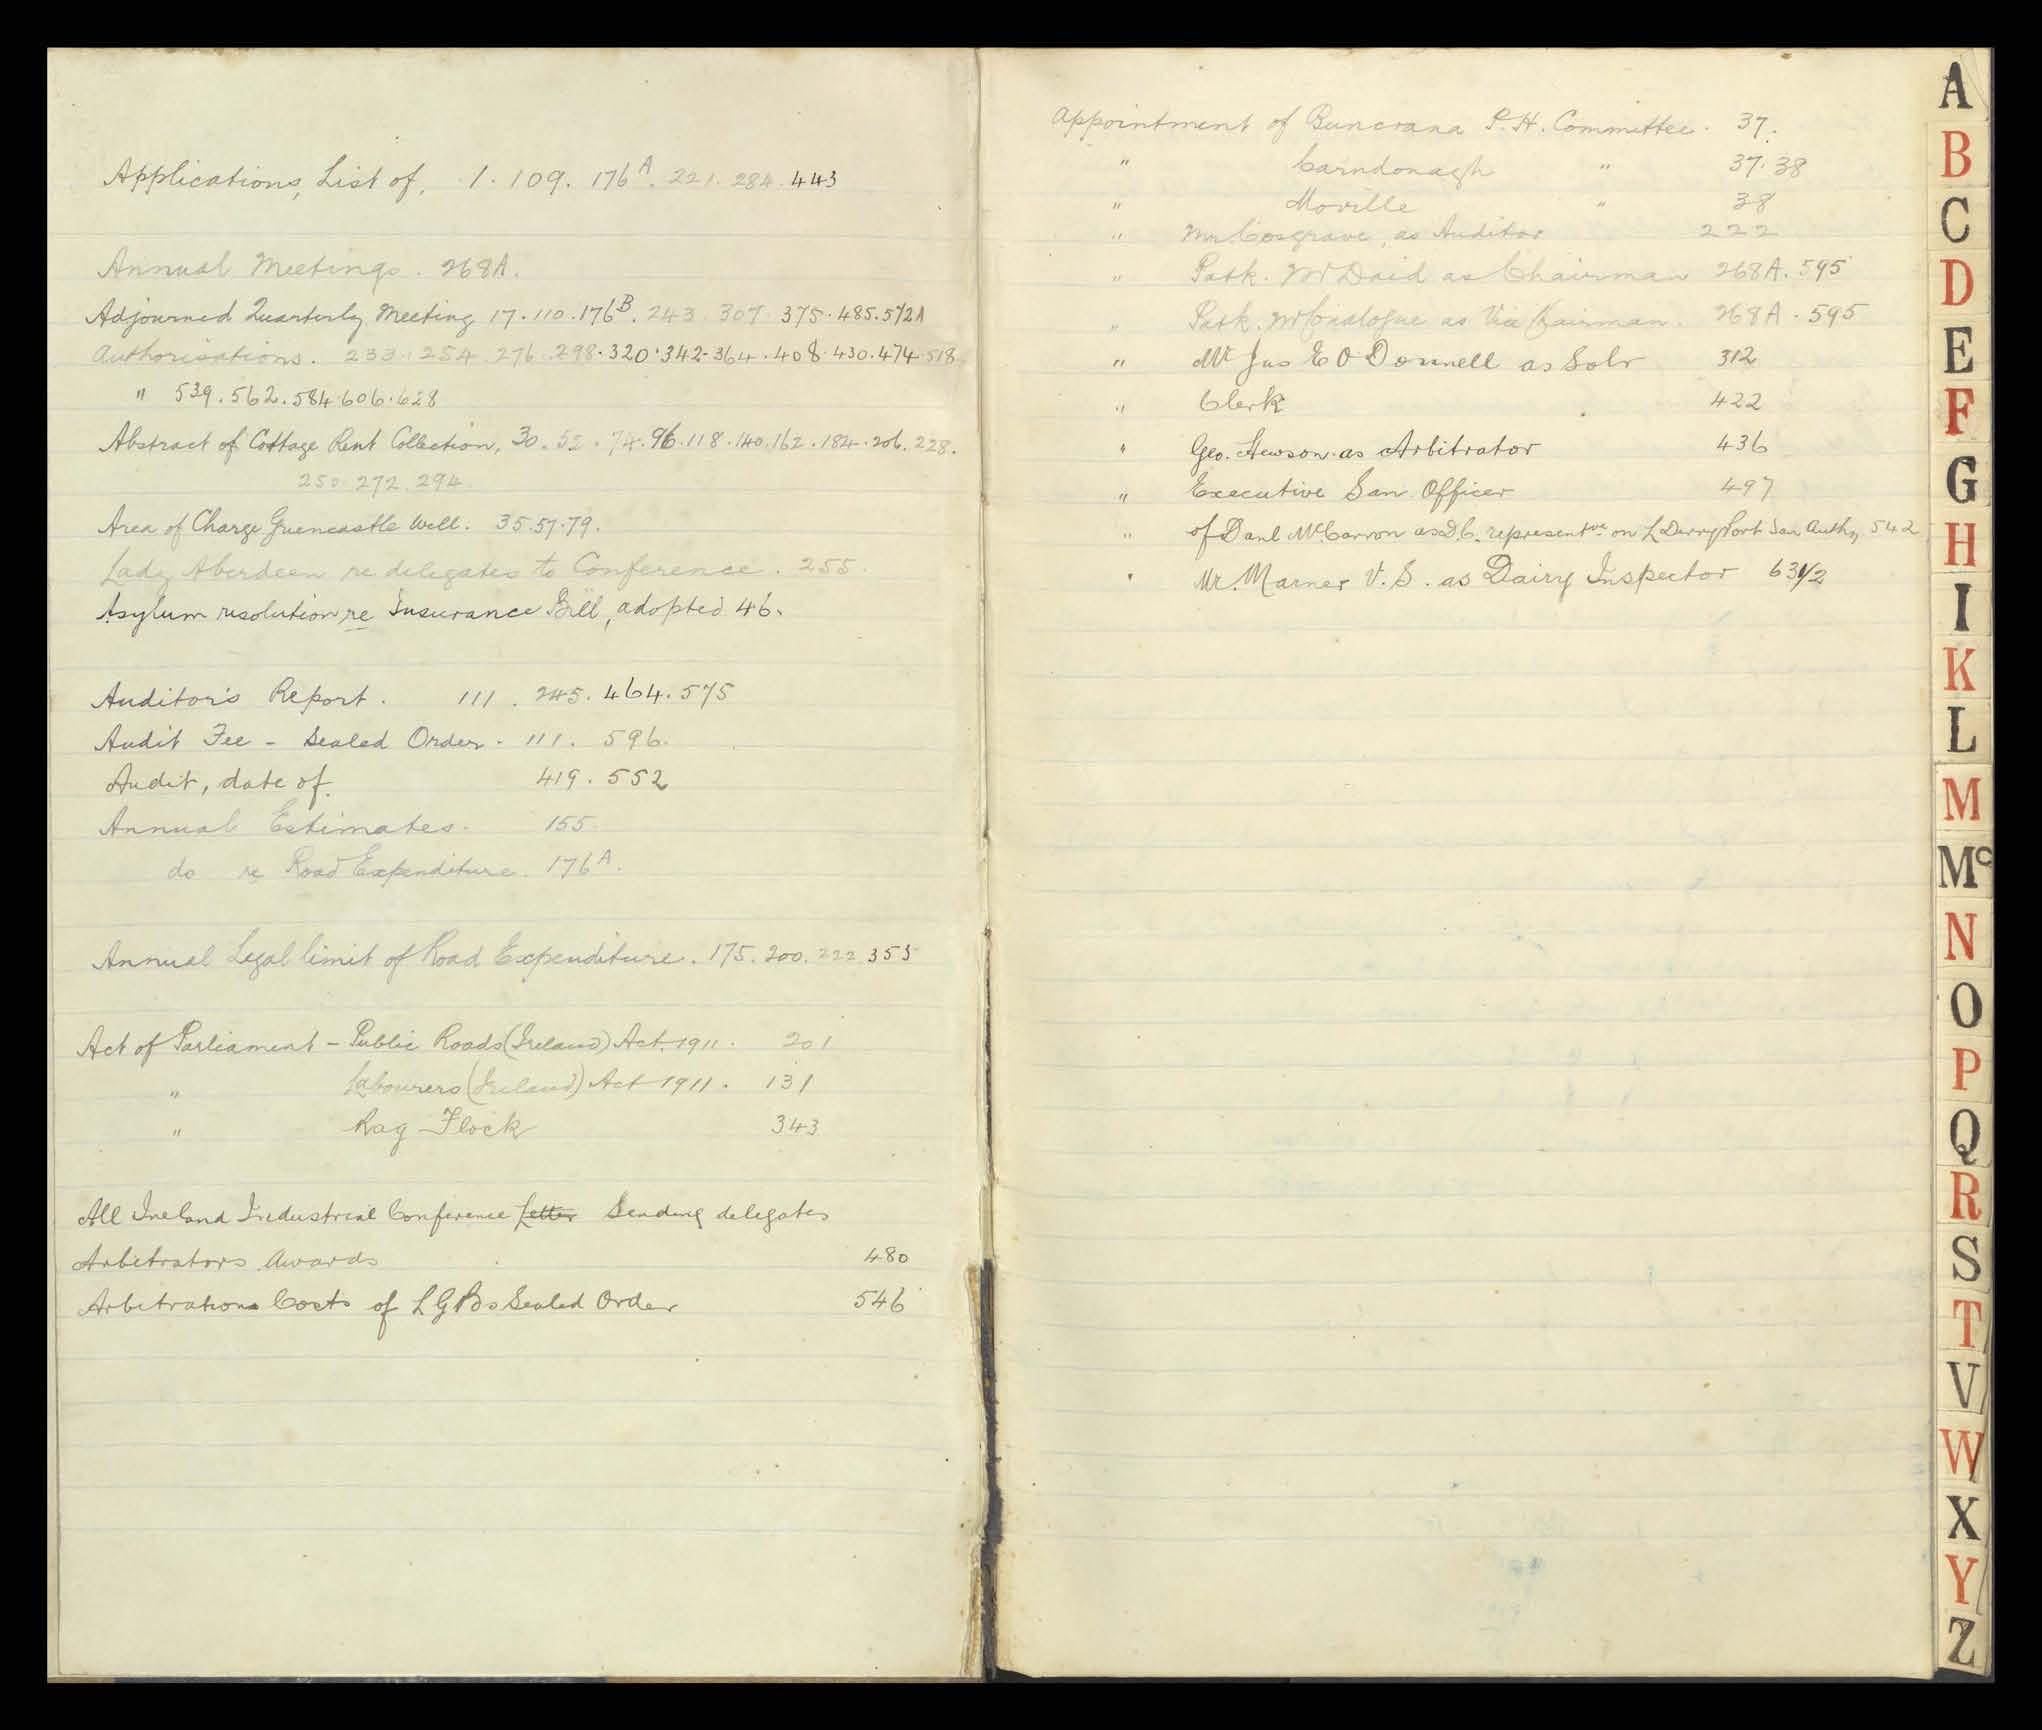 Applications, List of, 1. 109. 176A. 221. 284. 443
Annual Meetings. 268A.
Adjourned Quarterly Meeting 17. 110. 176B. 243. 307. 375. 485. 572A
Authorisations. 233. 254. 276. 298. 320. 342. 364. 408. 430. 474. 518
" 539. 562. 584. 606. 628
Abstract of Cottage Rent Collection, 30. 52. 74. 96. 118. 140. 162. 184. 206. 228.
250. 272. 294.
Area of Charge Greencastle Well. 35. 57. 79.
Lady Aberdeen re delegates to Conference. 255.
Asylum resolution re Insurance Bill, adopted 46.
Auditor's Report. 111. 245. 464. 575
Audit Fee - Sealed Order - 111. 596.
Audit, date of. 419. 552
Annual Estimates. 155.
do re Road Expenditure. 176A.
Annual Legal limit of Road Expenditure. 175. 200. 222. 353
Act of Parliament - Public Roads (Ireland) Act. 1911. 201
" Labourers (Ireland) Act 1911. 131
" Rag Flock 343
All Ireland Industrial Conference Letter Sending delegates
Arbitrators Awards 480
Arbitrations Costs of LGBs Sealed Order 546
Appointment of Buncrana P. H. Committee. 37.
" Carndonagh " 37. 38
" Moville " 38
" Mr. Cosgrave, as Auditor 222
" Patk. McDaid as Chairman 268A. 595
" Patk. McConalogue as Vice Chairman. 268A. 595
" Mr Jas E O'Donnell as Solr 312
" Clerk 422
" Geo. Hewson as Arbitrator 436
" Executive San Officer 497
" of Danl McCarron as D.C. representve on L Derry Port San Auth, 542
" Mr. Marner V. S. as Dairy Inspector 631/2
A
B
C
D
E
F
G
H
I
K
L
M
Mc
N
O
P
Q
R
S
T
V
W
X
Y
Z